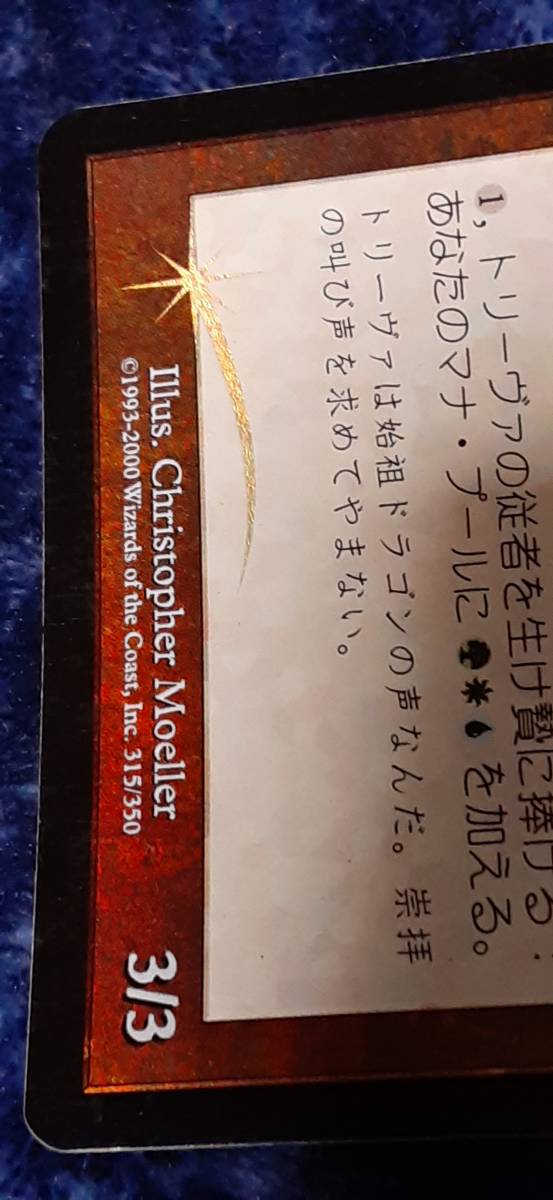 1, トリーヴァの従者を生け贄に捧げる:
あなたのマナ・プールに を加える。
トリーヴァは始祖ドラゴンの声なんだ。崇拝
の叫び声を求めてやまない。
Illus. Christopher Moeller
©1993-2000 Wizards of the Coast, Inc. 315/350
3/3